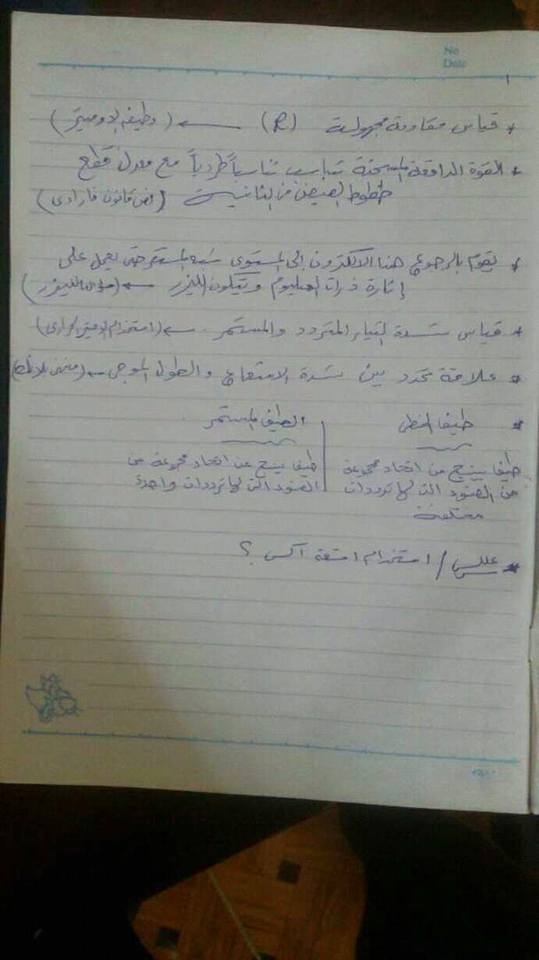 No
Date
* قياس مقاومة مجهولة (R) ← (وظيفة الاوميتر)
* القوة الدافعة المستحثة تتناسب تناسباً طردياً مع معدل قطع
خطوط الفيض في الثانية (نص قانون فارادى)
* يقوم بالرجوع هذا الالكترون إلى المستوى شبه المستقر حتى يعمل على
إثارة ذرات الهليوم وتكون الليزر ←
* قياس شدة التيار المتردد والمستمر ← (استخدام الاميتر الحرارى)
* علاقة تحدد بين شدة الاشعاع والطول الموجى ← (منحنى بلانك)
* طيف الخطى
الطيف المستمر
طيف ينتج عن اتحاد مجموعة
من الضوء التى لها ترددات
مختلفة
طيف ينتج عن اتحاد مجموعة من
الضوء التى لها ترددات واحدة
* علل / استخدام اشعة اكس ؟